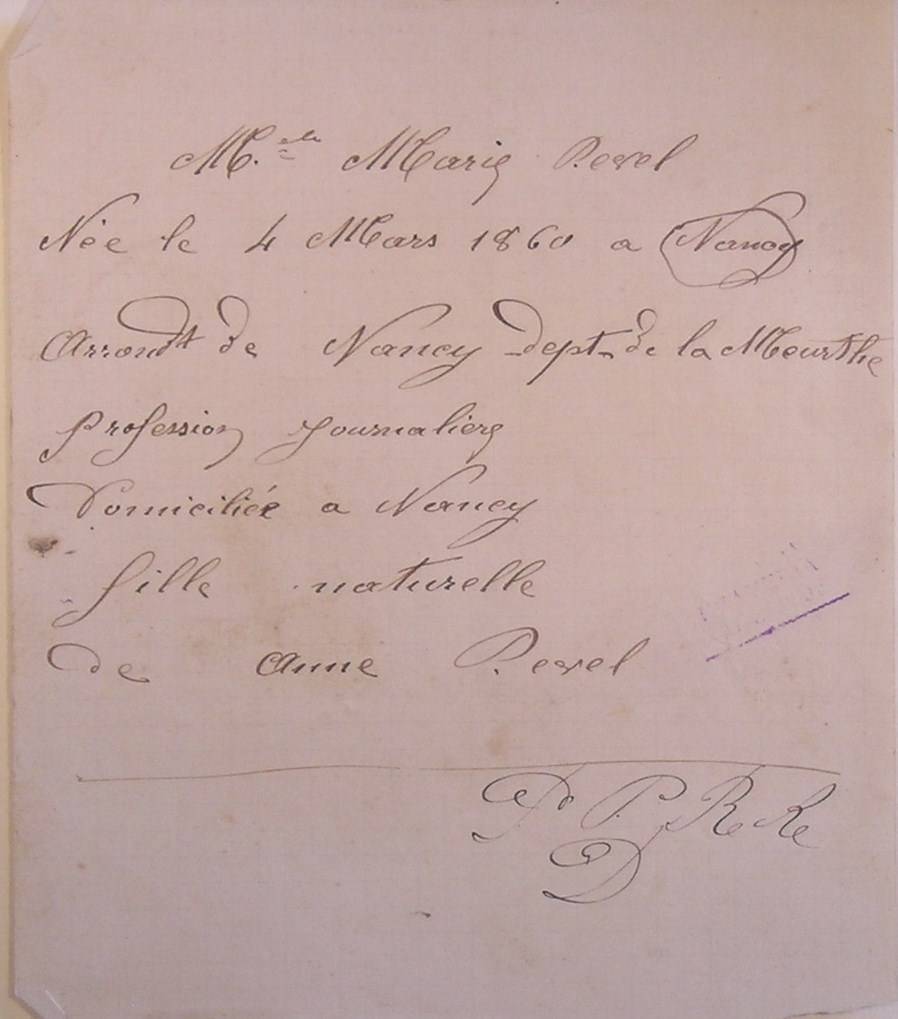 M.elle Marie Revel
Née le 4 Mars 1860 a Nancy
Arrondt de Nancy dept. de la Meurthe
profession journaliere
Domiciliée a Nancy
fille naturelle
de Anne Revel